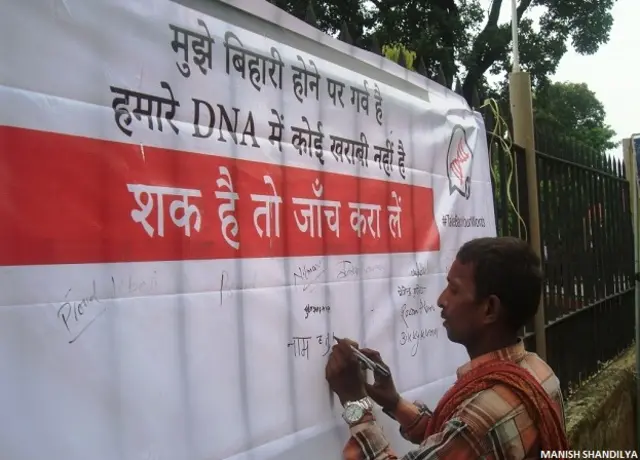 मुझे बिहारी होने पर गर्व है
हमारे DNA में कोई खराबी नहीं है
शक है तो जाँच करा लें
#TakeBackYourWords
नाम
MANISH SHANDILYA